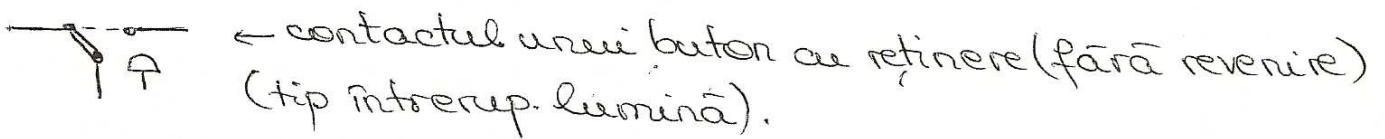 ← contactul unui buton cu reținere (fără revenire)
(tip întrerup. lumină).